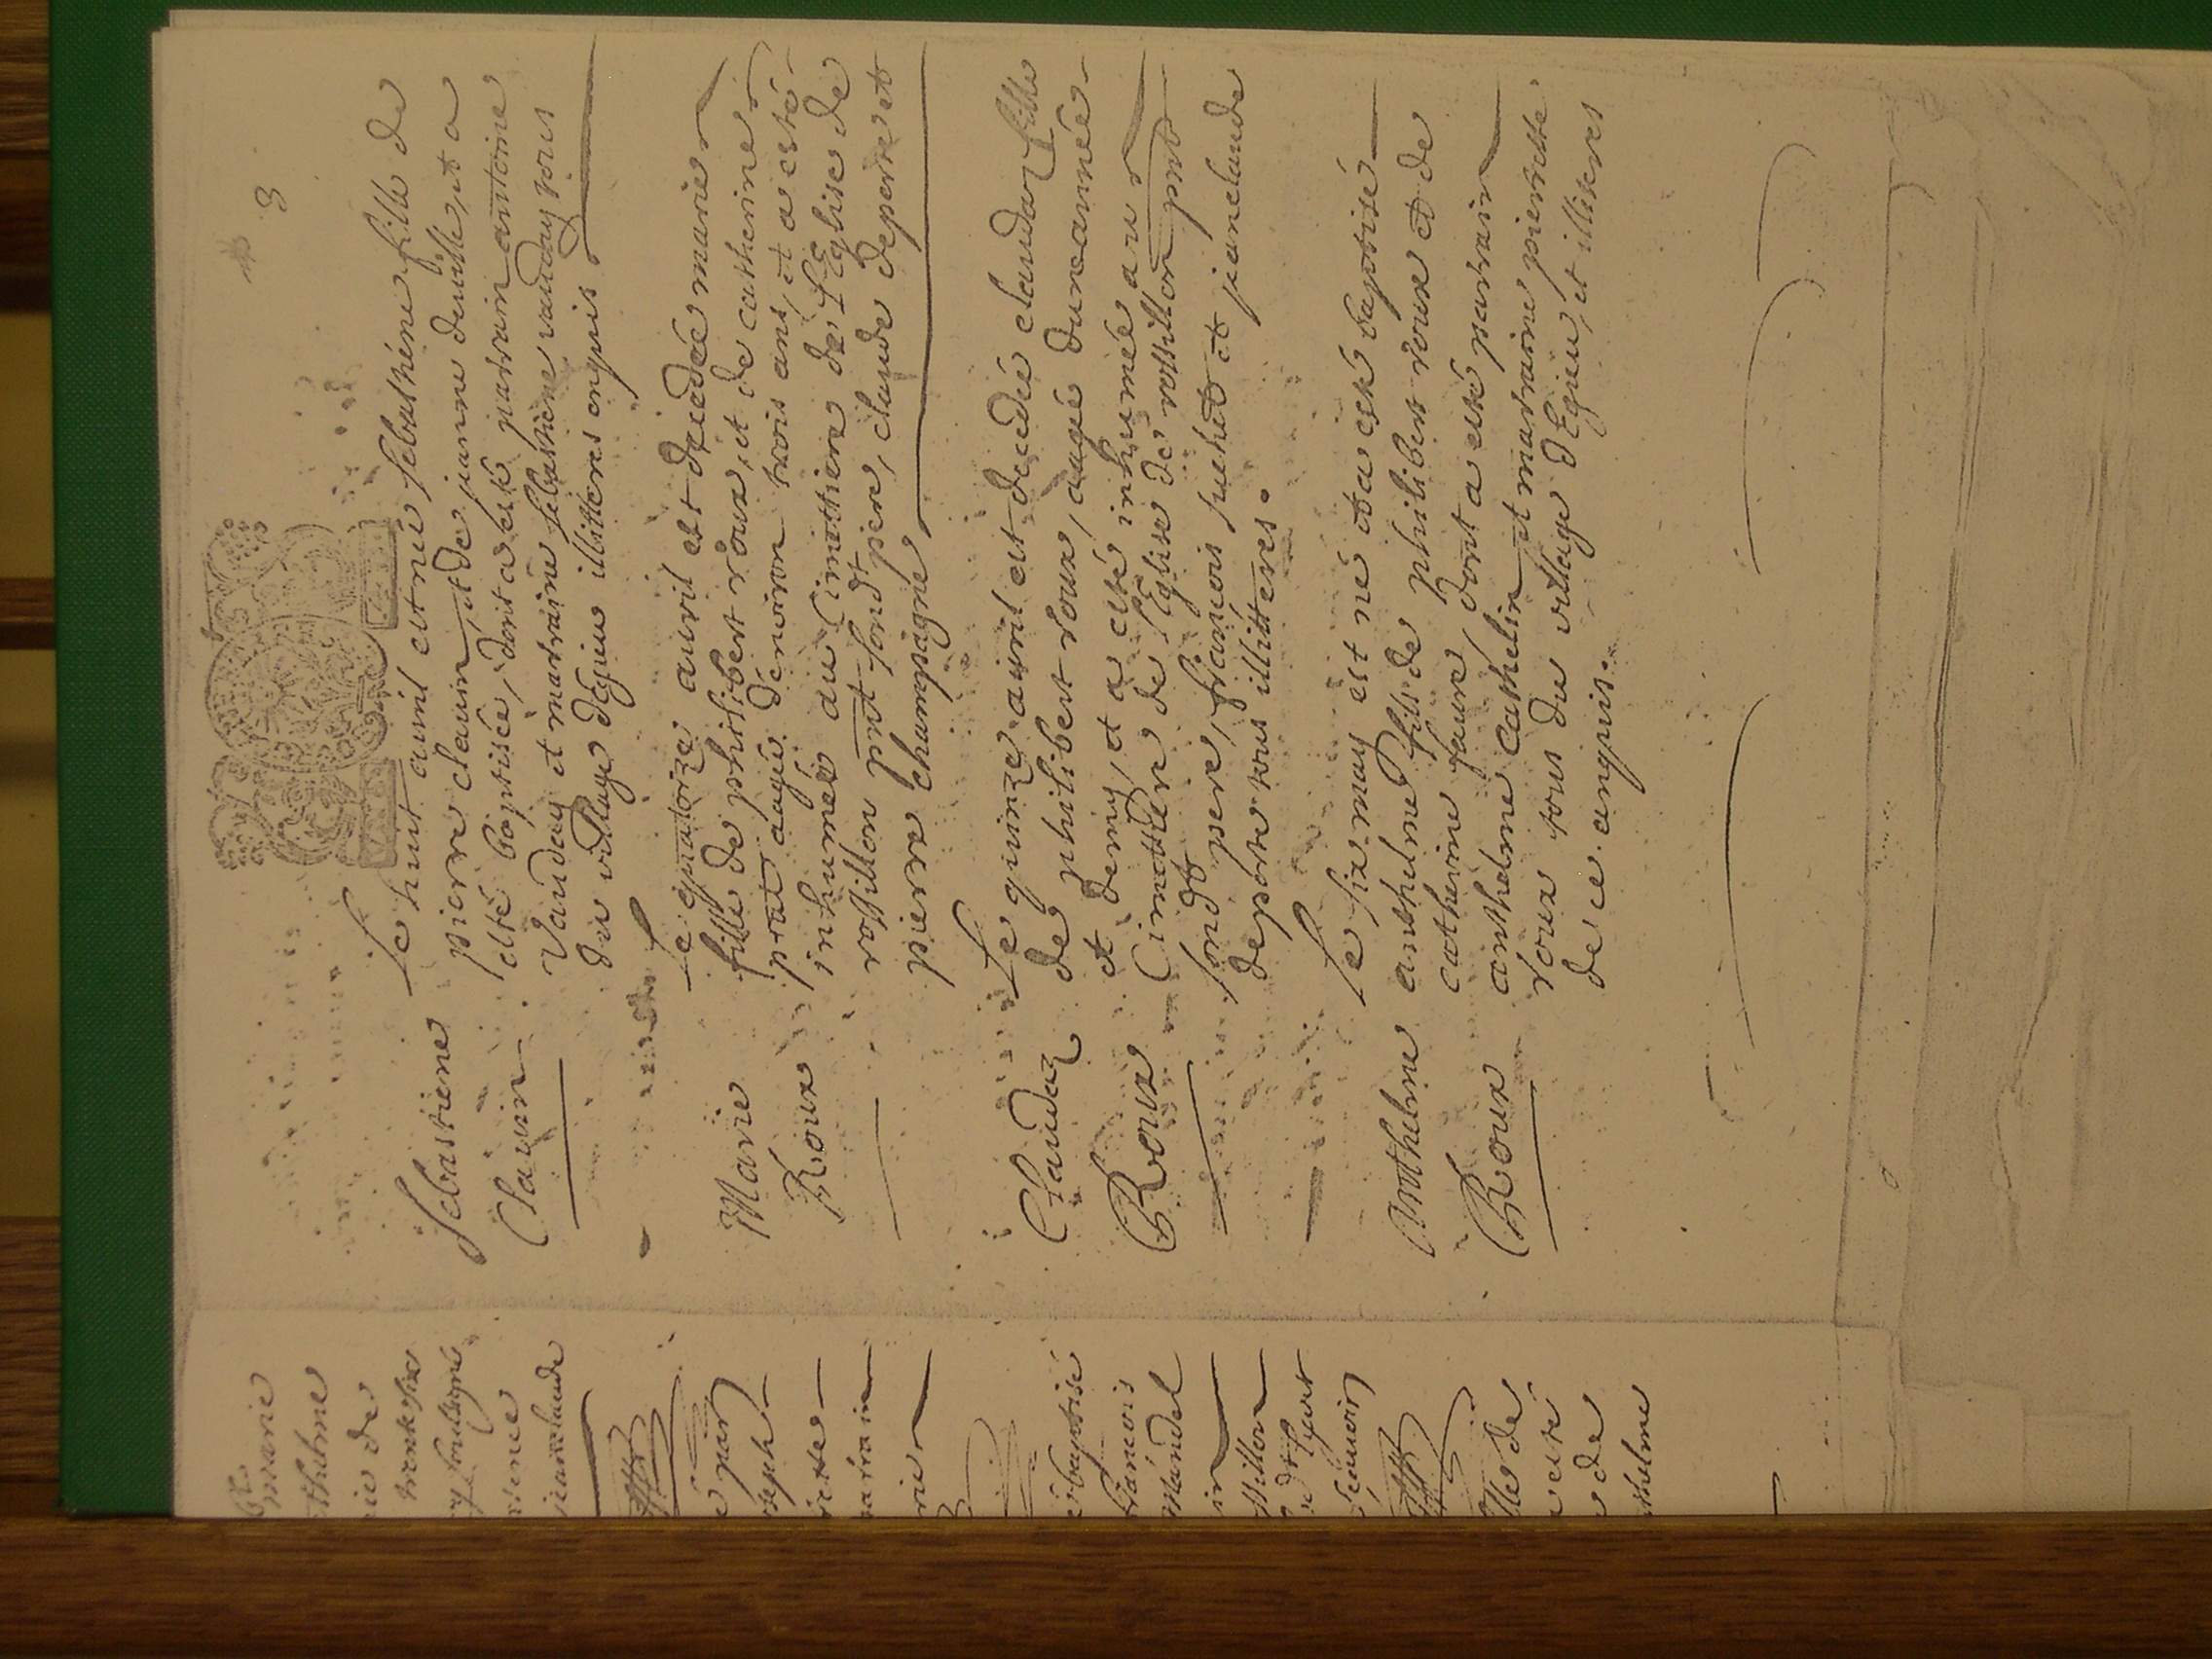 3
Sebastiene
Clauin
Le huit auril est née sebastiéne fille de
piere clauin, et de jeanne deuille, et a
esté baptisée, dont a esté parrain antoine
Vauday et marraine sebastiene vauday tous
du village dEgieu illitteres enquis
Marie
Roux
Le quatorze auril est decedée marie
fille de philibert roux, et de catherine
prat aagée denviron trois ans, et a esté
inhumée au Cimettiere de l'Eglise de
rossillon pnt sondt pere, claude deporte et
pierre champagne
Claudaz
Roux
Le quinze auril est decedée claudaz fille
de philibert roux, aagée dune année
et demy, et a esté inhumée au
Cimettiere de l'Eglise de rossillon pnt
sondt pere, francois juhet et jeanclaude
deporte tous illitteres.
Anthelme
Roux
Le six may est né et a esté baptisé
anthelme fils de philibert roux et de
catherine faure, dont a esté parrain
anthelme cathelin et marraine pierrette
roux tous du village dEgieu, et illiteres
de ce enquis.
marie
thelme
de
trente six
jeanclaude
baptisé
francois
Mandel
de
thelme